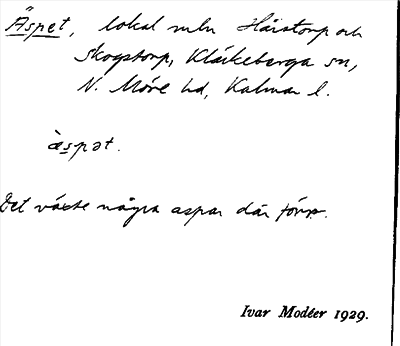 Äspet, lokal mln Häistorp och
Skogstorp, Kläckeberga sn,
N. Möre hd, Kalmar l.
ä̀spət.
Det växte några aspar där förr.
Ivar Modéer 1929.